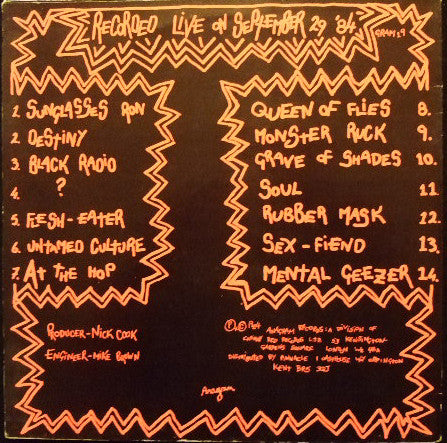 RECORDED LIVE ON SEPTEMBER 29 '84
GRAM 19
1. SUNGLASSES RON
2. DESTINY
3. BLACK RADIO
4. ?
5. FLESH-EATER
6. UNTAMED CULTURE
7. AT THE HOP
QUEEN OF FLIES 8.
MONSTER RUCK 9.
GRAVE OF SHADES 10.
SOUL 11
RUBBER MASK 12.
SEX-FIEND 13.
MENTAL GEEZER 14.
PRODUCER-NICK COOK
ENGINEER-MIKE BROWN
Ⓟ © 1984 ANAGRAM RECORDS: A DIVISION OF
CHERRY RED RECORDS LTD 53 KENSINGTON
GARDENS SQUARE LONDON W2 4BA
DISTRIBUTED BY PINNACLE 1 OASTHOUSE WY ORPINGTON
KENT BR5 3DJ
Anagram